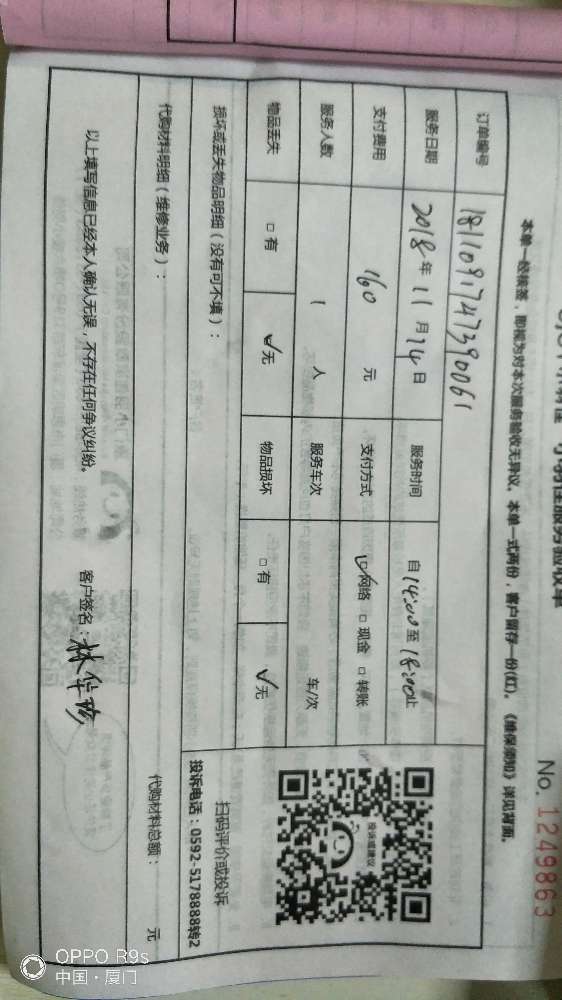 小羽佳服务验收单
No. 1249863
本单一经核签，即视为对本次服务验收无异议。本单一式两份，客户留存一份(红)。《维保须知》详见背面。
订单编号 181109174739006１
服务日期 2018年 11 月 14 日 服务时间 自 14:00 至 18:00止
支付费用 160 元 支付方式 ☑网络 □ 现金 □ 转账
服务人数 1 人 服务车次 车/次
物品丢失 □ 有 ☑无 物品损坏 □ 有 ☑无
投诉或建议
扫码评价或投诉
投诉电话：0592-5178888转2
损坏或丢失物品明细（没有可不填）：
代购材料明细（维修业务）：
代购材料总额： 元
以上填写信息已经本人确认无误，不存在任何争议纠纷。
客户签名：林华珍
OPPO R9s
中国·厦门